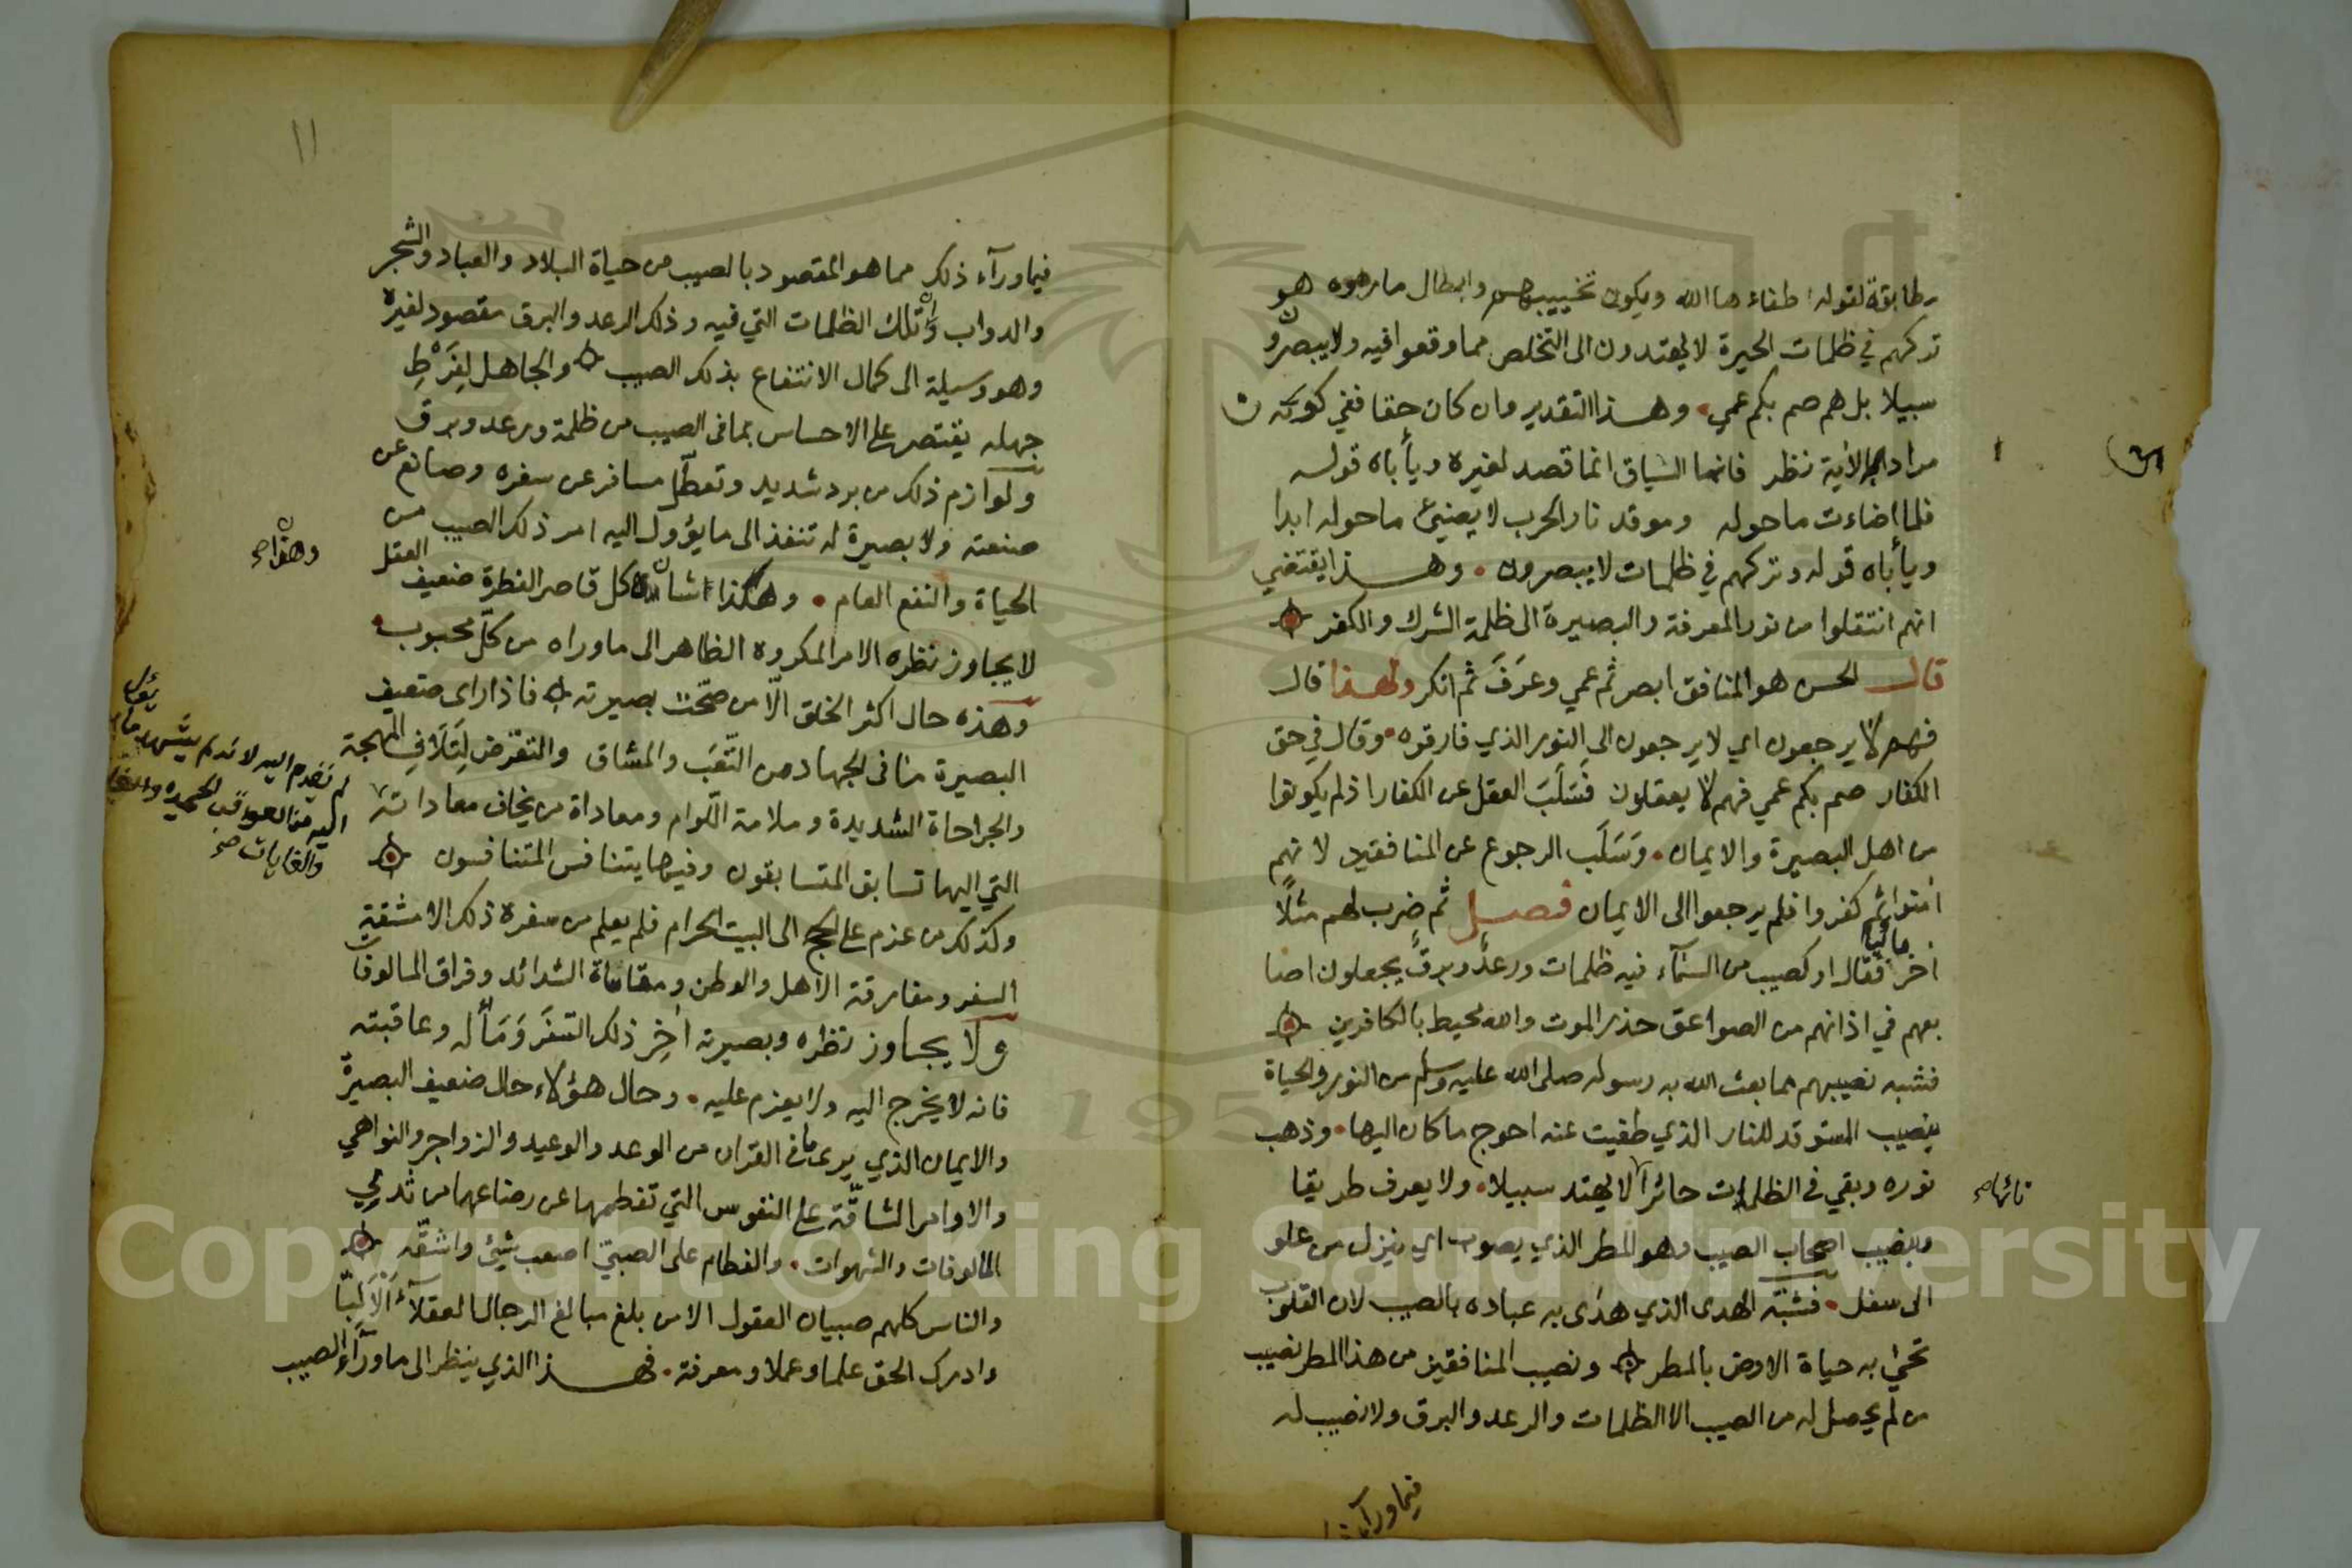 مطابقة لقوله اطفاءها الله ويكون تخييبهم وابطال ما راموه هو
تركهم في ظلمات الحيرة لا يهتدون الى التخلص مما وقعوا فيه ولا يبصرون
سبيلا بل هم صم بكم عمي وهذا التقدير وان كان حقا ففي كونه
مرادا بالآية نظر فانما السياق انما قصد لغيره ويأباه قوله
فلما اضاءت ما حوله وموقد نار الحرب لا يضيئ ما حوله ابدا
ويأباه قوله وتركهم في ظلمات لا يبصرون وهذا يقتضي
انهم انتقلوا من نور المعرفة والبصيرة الى ظلمة الشرك والكفر
قال الحسن هو المنافق ابصر ثم عمي وعرَفَ ثم انكر ولهذا قال
فهم لا يرجعون اي لا يرجعون الى النور الذي فارقوه وقال في حق
الكفار صم بكم عمي فهم لا يعقلون فسَلَبَ العقل عن الكفار اذ لم يكونوا
من اهل البصيرة والايمان وَسَلَب الرجوع عن المنافقين لانهم
امنوا ثم كفروا فلم يرجعوا الى الايمان فصل ثم ضرب لهم مثلًا
اخر مائيا فقال او كصيب من السمآء فيه ظلمات ورعدٌ وبرقٌ يجعلون اصا
بعهم في اذانهم من الصواعق حذر الموت والله محيط بالكافرين
فشبه نصيبهم مما بعث الله به رسوله صلى الله عليه وسلم من النور والحياة
بنصيب المستوقد للنار الذي طفيت عنه احوج ما كان اليها وذهب
نوره وبقي في الظلمات حائرا لا يهتد سبيلا ولا يعرف طريقا
تائها صح
وبنصيب اصحاب الصيب وهو المطر الذي يصوب اي ينزل من علو
الى سفل فشبّه الهدى الذي هدى به عباده بالصيب لان القلوب
تحيى به حياة الارض بالمطر ونصيب المنافقين من هذا المطر نصيب
من لم يحصل له من الصيب الا الظلمات والرعد والبرق ولا نصيب له
فيما ورآء
١١
فيما ورآء ذلك مما هو المقصود بالصيب من حياة البلاد والعباد والشجر
والدواب وان تلك الظلمات التي فيه وذلك الرعد والبرق مقصود لغيره
وهو وسيلة الى كمال الانتفاع بذلك الصيب والجاهل لِفَرْطِ
جهله يقتصر على الاحساس بما في الصيب من ظلمة ورعد وبرق
ولوازم ذلك من برد شديد وتعطّل مسافر عن سفره وصانع عن
صنعته ولا بصيرة له تنفذ الى ما يؤول اليه امر ذلك الصيب من
الحياة والنفع العام وهكذا شان كل قاصر النظرة ضعيف العقل
لا يجاوز نظره الامر المكروه الظاهر الى ما وراه من كلّ محبوب
وهذه حال اكثر الخلق الّا من صحّت بصيرته فاذا راى ضعيف
البصيرة ما في الجهاد من التّعَب والمشاق والتعرّض لِتَلَافِ المهجة
والجراحاة الشديدة وملامة اللّوام ومعاداة من يخاف معاداته
لم يقدم اليه لانه لم يشهد ما يؤل
اليه من العواقب الحميدة
والغايات صح
التي اليها تسابق المتسابقون وفيها يتنافس المتنافسون
وكذلك من عزم على الحج الى البيت الحرام فلم يعلم من سفره ذلك الا مشقة
السفر ومفارقة الاهل والوطن ومقاساة الشدائد وفراق المالوفات
ولا يجاوز نظره وبصيرته اخِر ذلك السَفَر وَمَأله وعاقبته
فانه لا يخرج اليه ولا يعزم عليه وحال هؤلاء حال ضعيف البصيرة
والايمان الذي يرى ما في القران من الوعد والوعيد والزواجر والنواهي
والاوامر الشاقّة على النفوس التي تفطمها عن رضاعها من ثدي
المالوفات والشهوات والفطام على الصبيّ اصعب شيئ واشقّه
والناس كلهم صبيان العقول الا من بلغ مبالغ الرجال العقلآء الَالِبّا
وادرك الحق علما وعملا ومعرفة فهذا الذي ينظر الى ما ورآء الصيب